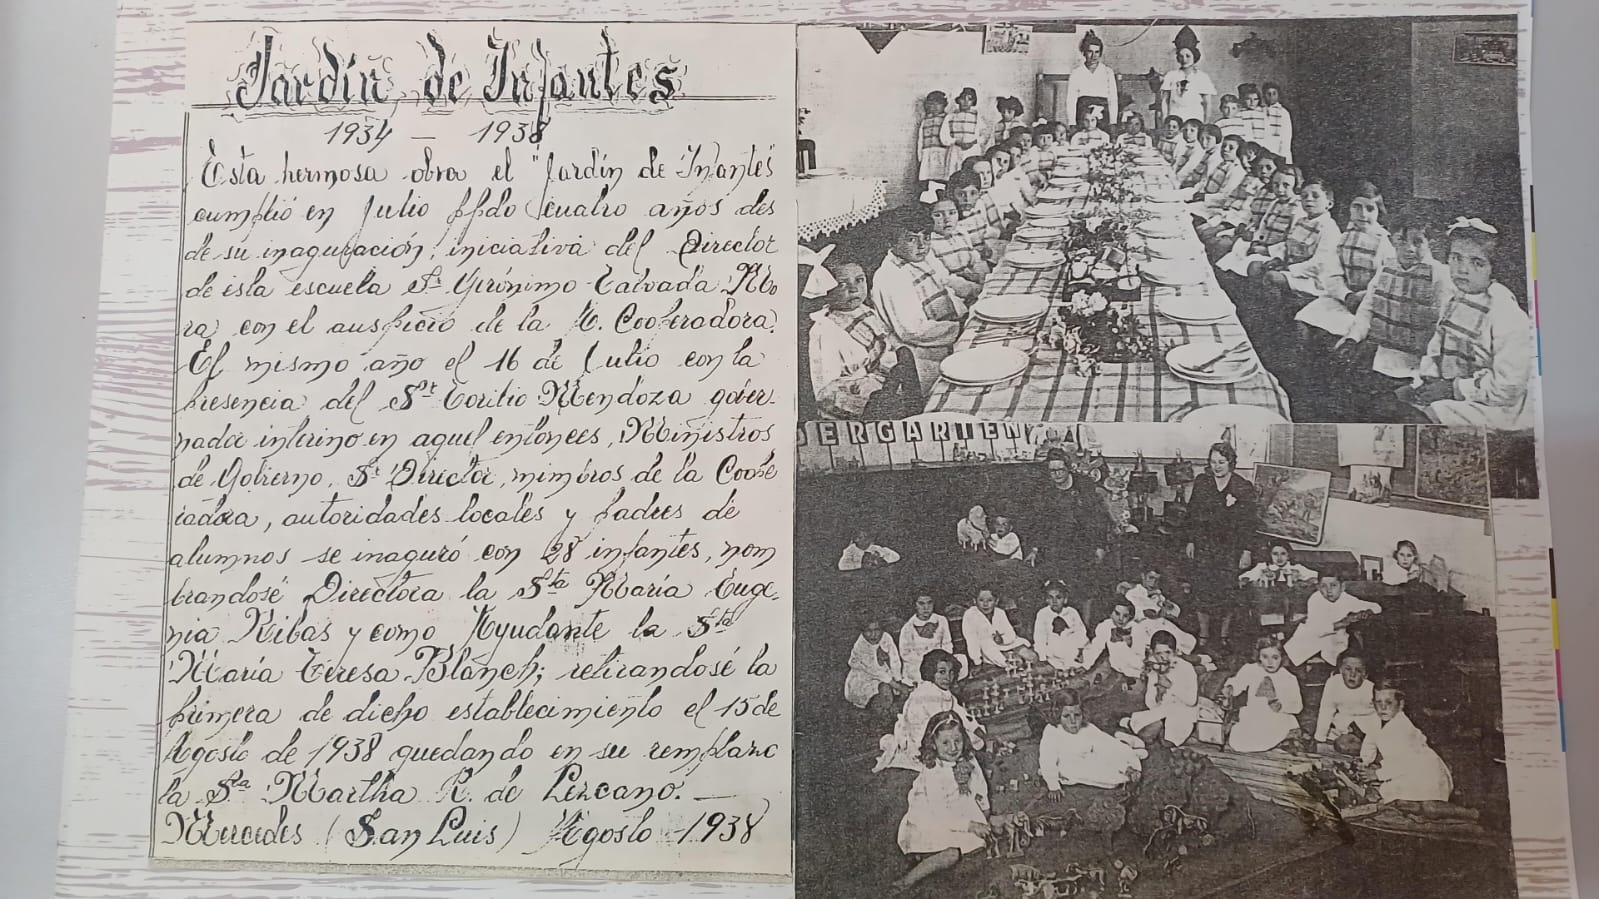 Jardín de Infantes
1934 - 1938
Esta hermosa obra el "Jardín de Infantes"
cumplió en Julio ppdo cuatro años des
de su inaguración; iniciativa del Director
de esta escuela Sr. Gerónimo Calvada Mo
ra con el auspicio de la A. Cooperadora.
El mismo año el 16 de Julio con la
presencia del Sr. Toribio Mendoza gober-
nador interino en aquel entonces, Ministros
de Gobierno, Sr. Director, mimbros de la Coope
radora, autoridades locales y padres de
alumnos se inaguró con 28 infantes, nom
brandosé Directora la Sta María Euge-
nia Ribas y como Ayudante la Sta
María Teresa Blanch; retirandosé la
primera de dicho establecimiento el 15 de
Agosto de 1938 quedando en su remplazo
la Sra Martha R. de Lezcano.
Mercedes (San Luis) Agosto - 1938
ERGARTEN